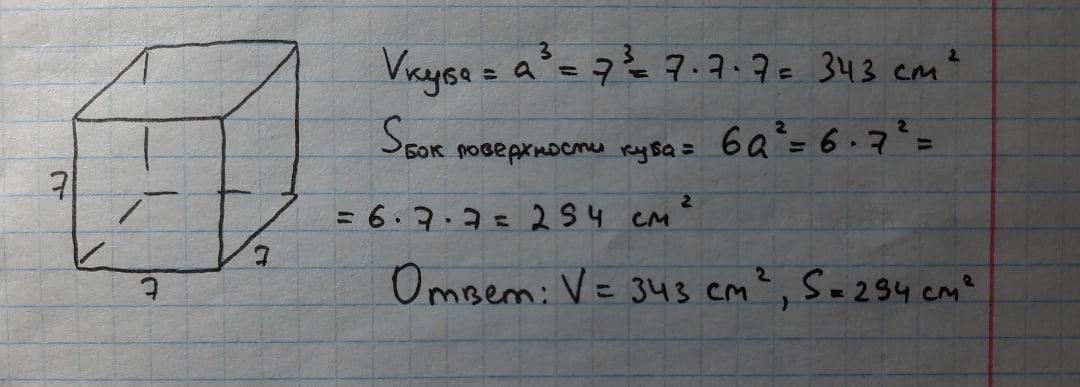 Vкуба = a³ = 7³ = 7·7·7 = 343 см²
Sбок поверхности куба = 6a² = 6·7² =
= 6·7·7 = 294 см²
7
7
7
Ответ: V = 343 см², S = 294 см²